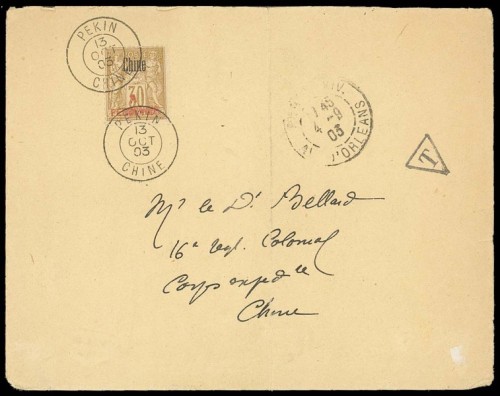 PEKIN
13
OCT
03
CHINE
Chine
30
PEKIN
13
OCT
03
CHINE
45
4 - 9
03
D'ORLEANS
T
Mr le Dr Bellard
16e regt. Colonial
Corps expedre
Chine